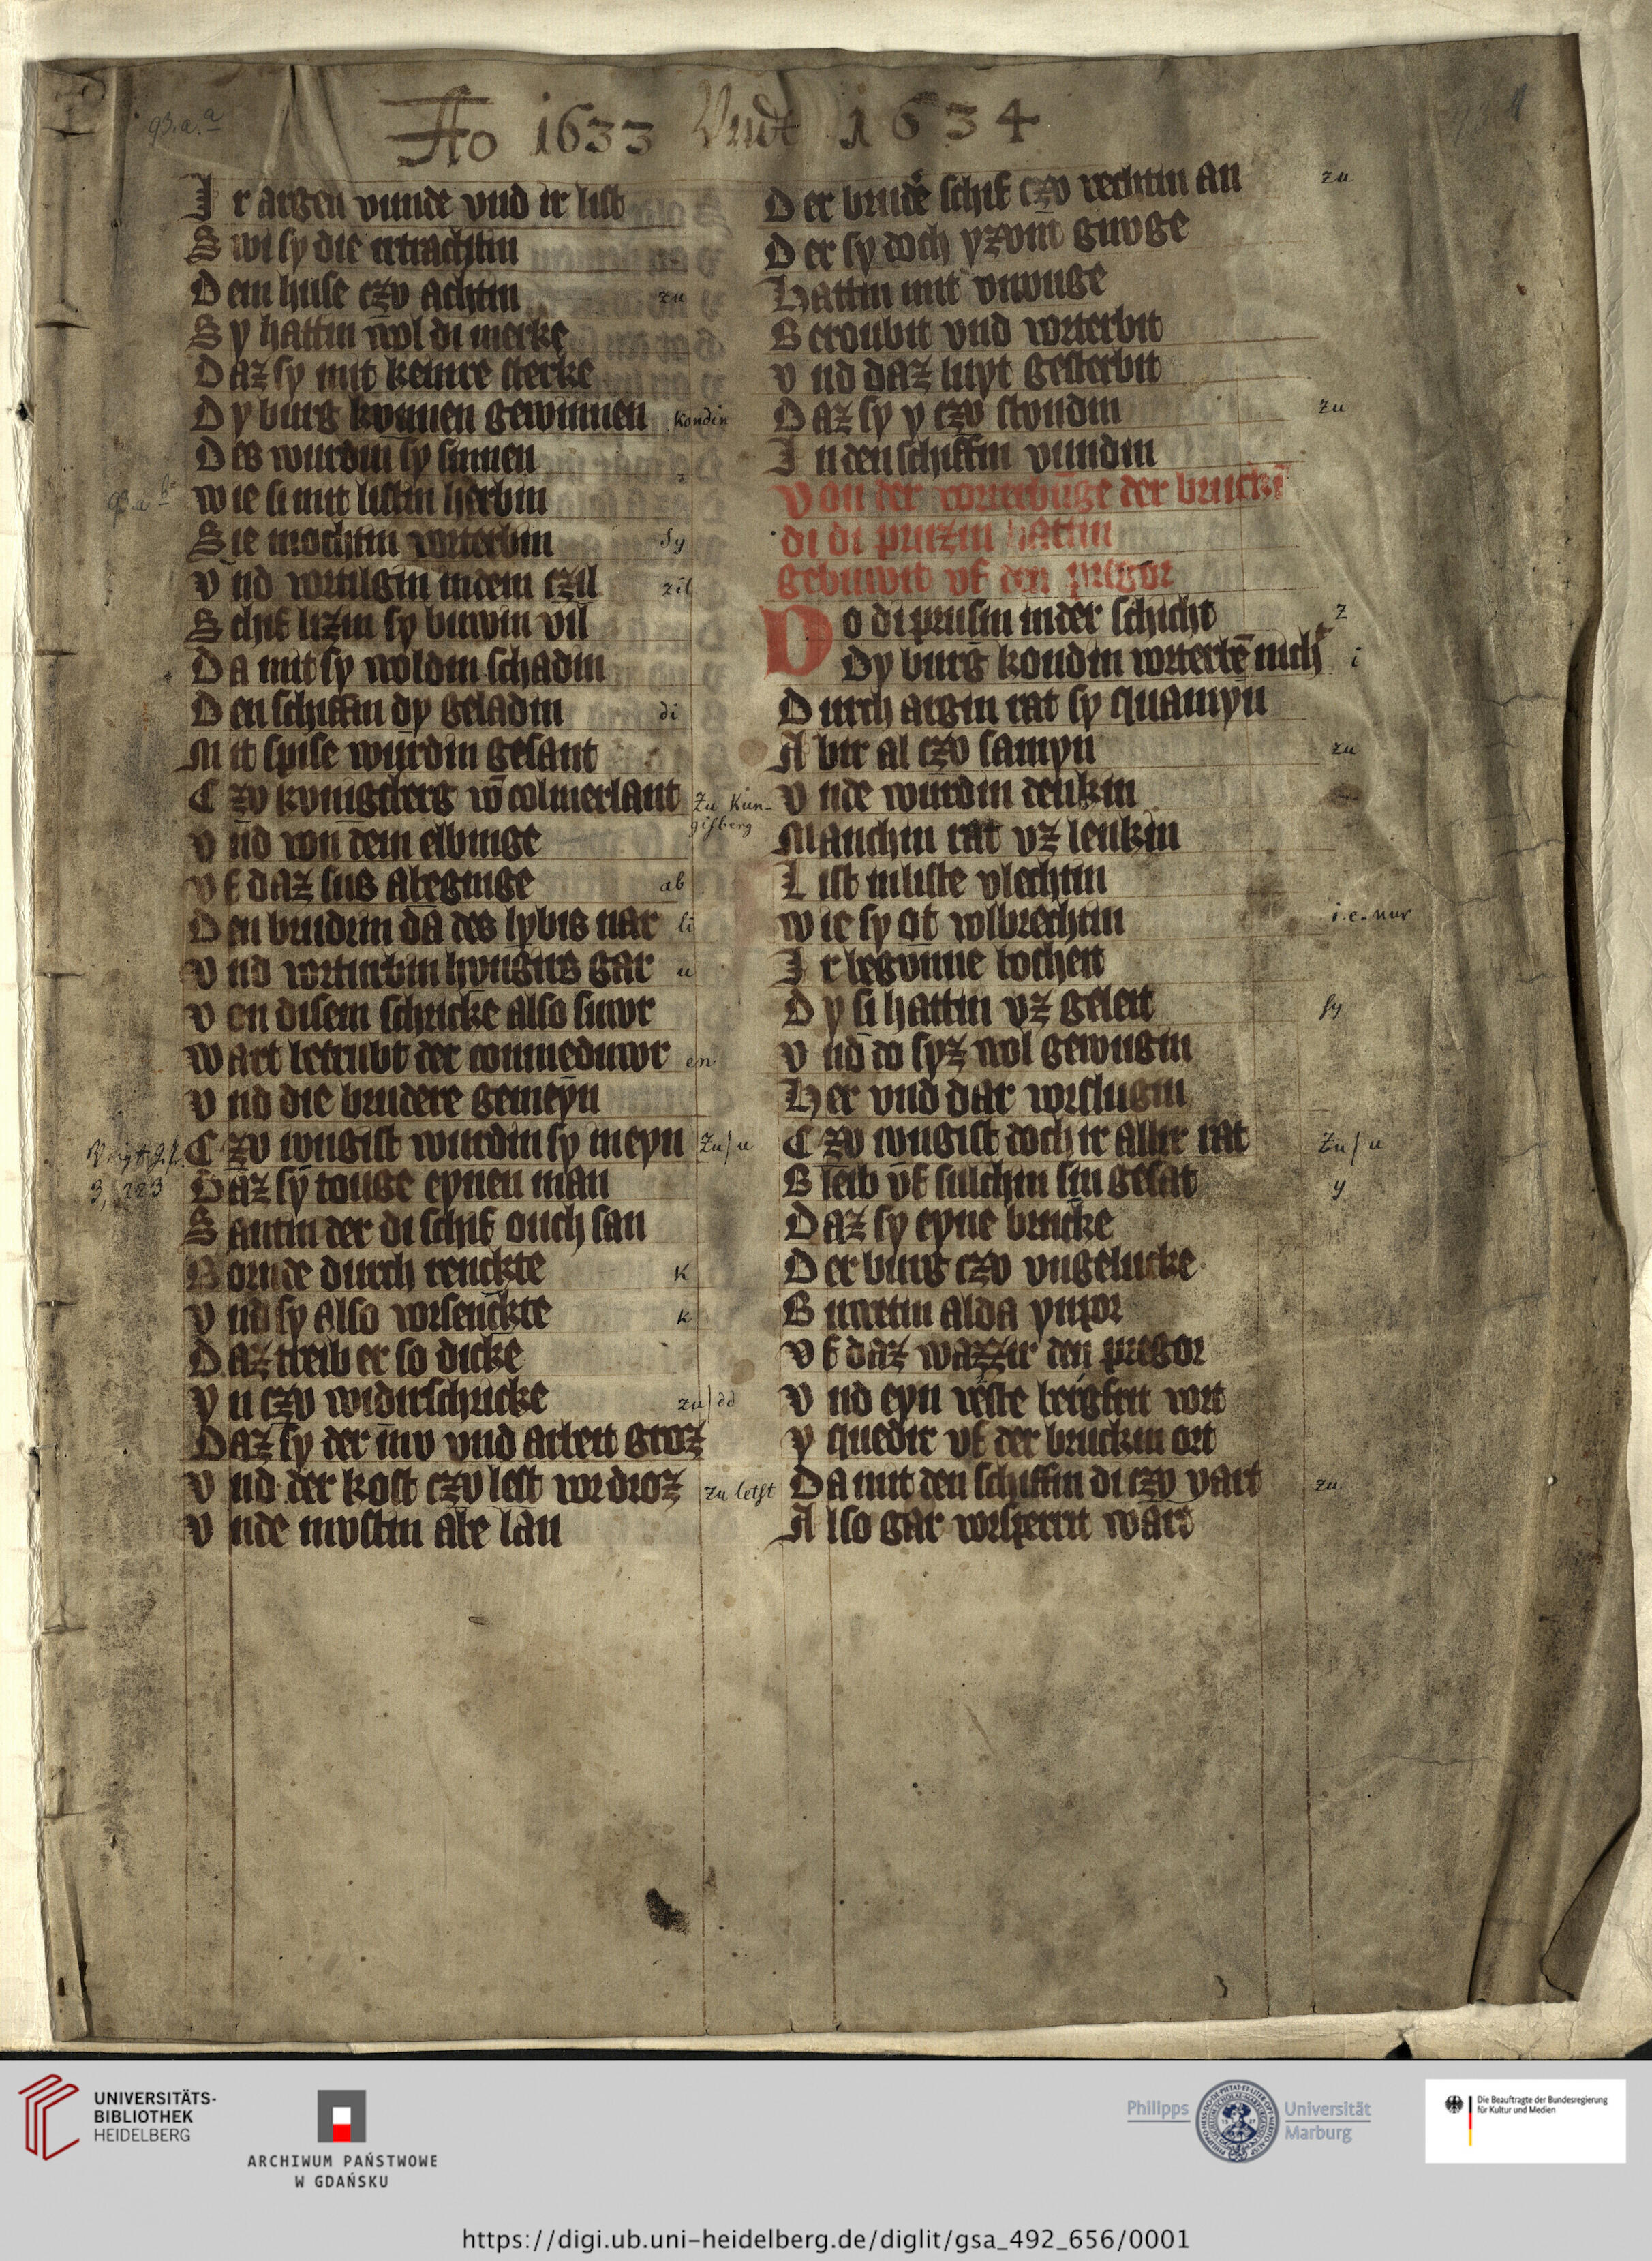 93.a.a
Ao 1633 Vndt 1634
Ir argen vunde vnd ir list
Swi sy die irtrachtin
Dem huse czv achtin
zu
Sy hattin wol di merke
Daz sy mit keinre sterke
Dy burg konnen gewinnen
kondin
Des wurdin sy sinnen
Wie si mit listin herbin
Sie mochtin vorterbin
sy
Vnd vortilgin in dem czil
zil
Schif lizin sy buwin vil
Da mit sy woldin schadin
Den schiffin dy geladin
di
Mit spise wurdin gesant
Czv kvnigsberg vō colmerlant
Zu Kun-
gisberg
Vnd von dem elbinge
Vf daz sus abeginge
ab
Den brudrin da des lybis nar
li
Vnd vorturbin hvngirs gar
u
Von disem schricke also suwr
Wart betrubt der conmeduwr
en
Vnd die brudere gemeyn
Czv ivngist wurdin sy in eyn
Zu / u
Daz sy touge eynen man
Santin der di schif ouch san
Bornde durch renckte
k
Vnd sy also vorsenckte
k
Daz treib er so dicke
Yn czv widirschricke
zu / dd
Daz sy der mv vnd arbeit groz
Vnd der kost czv lest vordroz
zu letst
Vnde mvstin abe lan
Der brudē schif czv rechtin an
zu
Der sy doch yzvnt gnvge
Hattin mit vnvuge
Beroubit vnd vorterbit
Vnd daz luyt gesterbit
Daz sy y czv stvndin
zu
In den schiffin vundin
Von der vorterbunge der brucki
di di pruzin hattin
gebuwit vf den prigor
Do di prusin in der schicht
z
Dy burg kondin vorterbē nicht
i
Durch argin rat sy quamyn
Abir al czv samyn
zu
Vnde wurdin denkin
Manchin rat vz lenkin
List in liste vlechtin
Wie sy ot volbrechtin
i.e. nur
Ir begvnne bocheit
Dy si hattin vz geleit
sy
Vnd do syz wol gewugin
Her vnd dar vorslugin
Czv ivngist doch ir allir rat
Zu / u
Bleib vf sulchin sin gesat
y
Daz sy eyne brucke
Der burg czv vngelucke
Buwetin alda ynpor
Vf daz wazzir den pregor
Vnd eyn veste bergfrit vort
Y quedir vf der bruckin ort
Da mit den schiffin di czv vart
zu
Also gar vorsperrit wart
UNIVERSITÄTS-
BIBLIOTHEK
HEIDELBERG
ARCHIWUM PAŃSTWOWE
W GDAŃSKU
Philipps
Universität
Marburg
Die Beauftragte der Bundesregierung
für Kultur und Medien
https://digi.ub.uni-heidelberg.de/diglit/gsa_492_656/0001